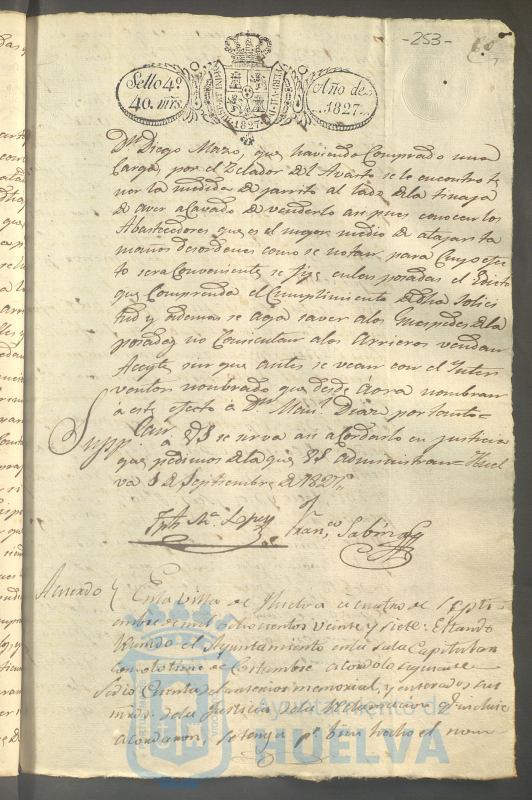 -253-
Sello 4º
40. mrs.
HISP. ET IND. R.
1827
Año de
1827.
Dn Diego Mazo, que haviendo Comprado una
Carga, por el Zelador del Avasto se le encontro te
ner la medida de jarrito al lado de la tinaja
de aver acavado de venderlo asi pues conocer los
Abastecedores que es el mejor medio de atajar ta
maños desordenes como se notan, para Cuyo efec
to sera Conveniente se fije en las posadas el Edicto
que Comprenda el Cumplimiento de dha Solici
tud y ademas se aga saver a los Guespedes de la
posadas no Consientan a los Arrieros vendan
Aceyte sin que antes se vean con el Inter
ventor nombrado que desde aora nombran
a este efecto a Dn Manl Diaz por tanto
Suppcan a VS se sirva asi acordarlo en justicia
que pedimos de la que VS administran = Huel
va 3 de Septiembre de 1827
Lopez
Franco Sabino
Acuerdo
En la villa de Huelva a cuatro de Septi
embre de mil ochocientos veinte y siete: Estando
Reunido el Ayuntamiento en la sala Capitular
como lo tiene de Costumbre acordo lo siguiente
Se dio Cuenta del anterior memorial, y enterados sus
mrds. de la Justicia de la Reclamacion que incluye
acordaron, se tenga pr bien hecho el nom
Ayuntamiento de
HUELVA